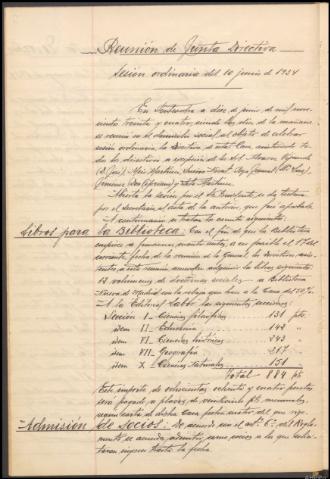 Reunión de Junta Directiva
Sesión ordinaria del 10 junio de 1934
En a diez de junio de mil nove-
cientos treinta y cuatro, siendo las once de la mañana
se reunió en el domicilio social, al objeto de celebrar
sesión ordinaria, la Directiva de esta Casa, asistiendo to-
dos los directivos a excepción de los
Abierta la sesión por el Presidente, se dio lectura
por el Secretario al acta de la anterior, que fue aprobada.
A continuación se tratan los asuntos siguientes:
Libros para la Biblioteca: Con el fin de que la Biblioteca
empiece a funcionar cuanto antes, a ser posible el 17 del
corriente, fecha de la reunión de la General, los directivos, asis-
tentes a esta reunión acuerdan adquirir los libros siguientes:
volúmenes de sociales a la Biblioteca
Nueva de Madrid con la rebaja que hace a la Casa del
A la Editorial Labor las siguientes secciones:
Sección I – Ciencias filosóficas 131 pts.
idem II – Educación 142 "
idem VI – Ciencias históricas 243 "
idem VII – Geografía 217 "
idem X – Ciencias Naturales 151 "
Total – 884 pts
Este importe de ochocientas ochenta y cuatro pesetas
será pagado a plazos de pts. mensuales,
según carta de dicha Casa fecha
Admisión de socios: De acuerdo con el artº 6º del Regla-
mento se acuerda admitir como socios a los que solici-
taron ingreso hasta la fecha.